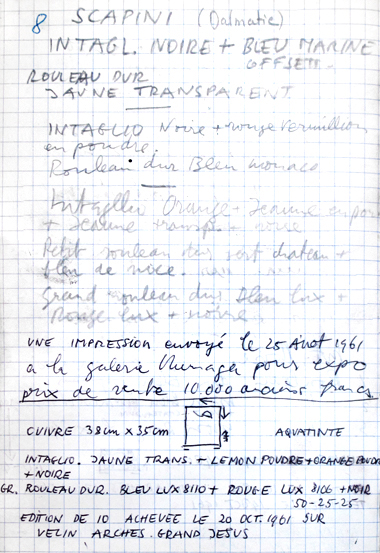 8 SCAPINI (Dalmatie)
INTAGL. NOIRE + BLEU MARINE
OFFSETT.
ROULEAU DUR
JAUNE TRANSPARENT
INTAGLIO Noire + rouge vermillion
en poudre.
Rouleau dur Bleu monaco
Intaglio Orange + Jeaune en
+ Jeaune transp. + noire
Petit rouleau dur vert chateau +
bleu de noce.
Grand rouleau dur bleu lux +
Rouge lux + noire.
UNE IMPRESSION envoyé le 25 Aout 1961
a la galerie pour expo
prix de vente 10.000 anciens francs
CUIVRE 38cm x 35cm AQUATINTE
INTAGLIO. JAUNE TRANS. + LEMON POUDRE + ORANGE POUDR
+ NOIRE
GR. ROULEAU DUR. BLEU LUX 8110 + ROUGE LUX 8106 + NOIR
50-25-25
EDITION DE 10 ACHEVEE LE 20 OCT. 1961 SUR
VELIN ARCHES. GRAND JESUS